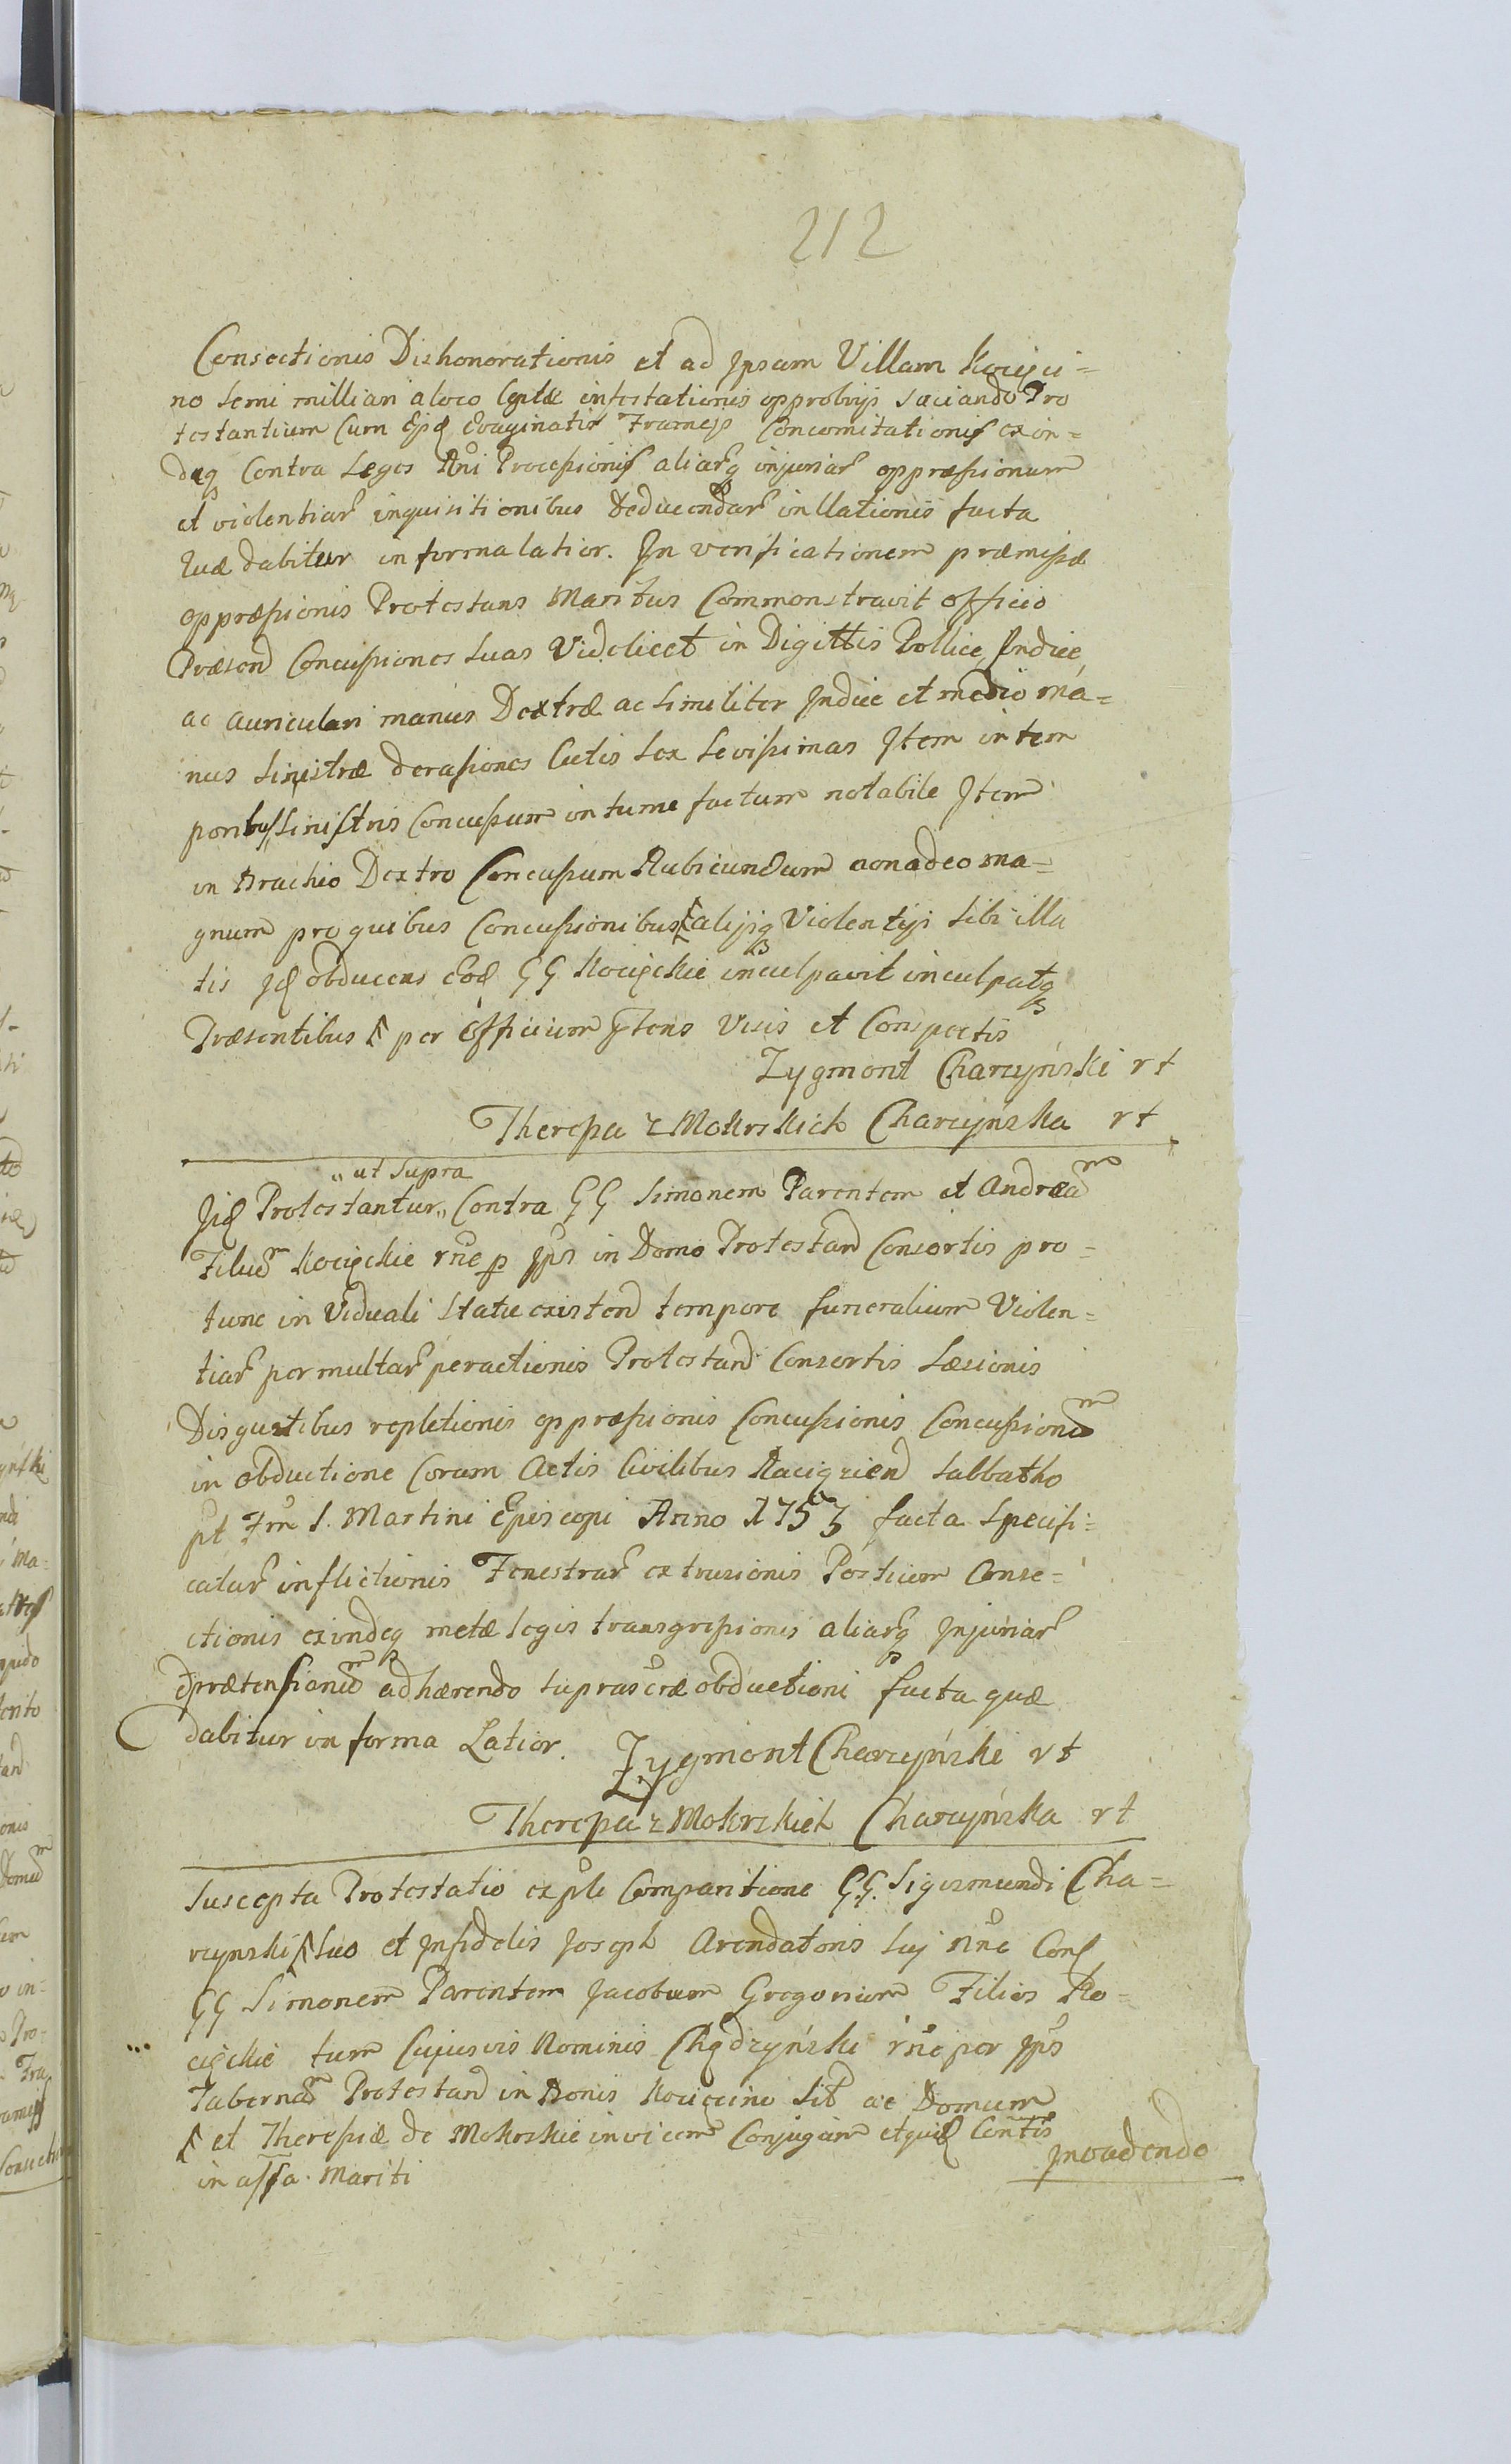 212
Consectionis Dishonorationis et ad Ipsam Villam Kocięci=
no Semi milliari a loco Cæptæ infestationis opprobrijs Saciando Pro
testantium Cum Ejsd Evaginatis Frameis Concomitationis exin=
deq Contra Leges Rni Processionis aliarq injuriar oppræssionum
et violentiar inquisitionibus Deducendar inllationis facta
Quæ dabitur in forma latior. In verificationem præmissæ
oppræssionis Protestans Maritus Commonstravit officio
Præsend Concussiones Suas Videlicet in Digittis Pollice Indice
ac auriculari manus Dextræ ac Similiter Indice et medio ma=
nus Sinistræ derasiones Cutis Sex Levissimas Item in tem
poribus Sinistris Concussum intume factum notabile Item
in Brachio Dextro Concussum Rubicundum non adeo ma=
gnum pro quibus Concussionibus alijsq Violentijs Sibi illa
tis Id obducens Eosd GG Kocięckie inculpavit inculpatq
Præsentibus per officium Ptens Visis et Conspectis
Zygmont Charzyński rt
Theressa z Mokrskich Charzyńska rt
"ut Supra
Jid Protestantur" Contra GG Simonem Parentem et Andreā m
Filiū m Kocięckie rñe p Ipōs in Domo Protestand Consortis pro=
tunc in Viduali Statu existend tempore funeralium Violen=
tiar permultar peractionis Protestand Consortis Læsionis
Disgustibus repletionis oppræssionis Concussionis Concussionū m
in obductione Coram Actis Civilibus Raciąziend Sabbatho
pt Fm S. Martini Episcopi Anno 1753 facta Specifi=
catar inflictionis Fenestrar extrusionis Postium Conse=
ctionis exindeq metæ legis transgressionis aliarq Injuriar
prætensionū m adhærendo suprascræ obductioni facta quæ
dabitur in forma Latior. Zygmont Charzyński rt
Theressa z Mokrskich Charzyńska rt
Suscepta Protestatio ex pšli Comparitione GG. Sigismundi Cha=
rzynski Suo et Infidelis Joseph Arendatoris Suj nñe Con
GG Simonem Parentem Jacobum Gregorium Filios Ko=
cięckie tum Cujusvis Nominis Chądzyński rñe per Ipōs
Tabernā m Protestand in Bonis Kocięcino Sit ac Domum
et Theressiæ de Mokrskie invicem Conjugum et quid Contis
in assa. Mariti
Invadendo